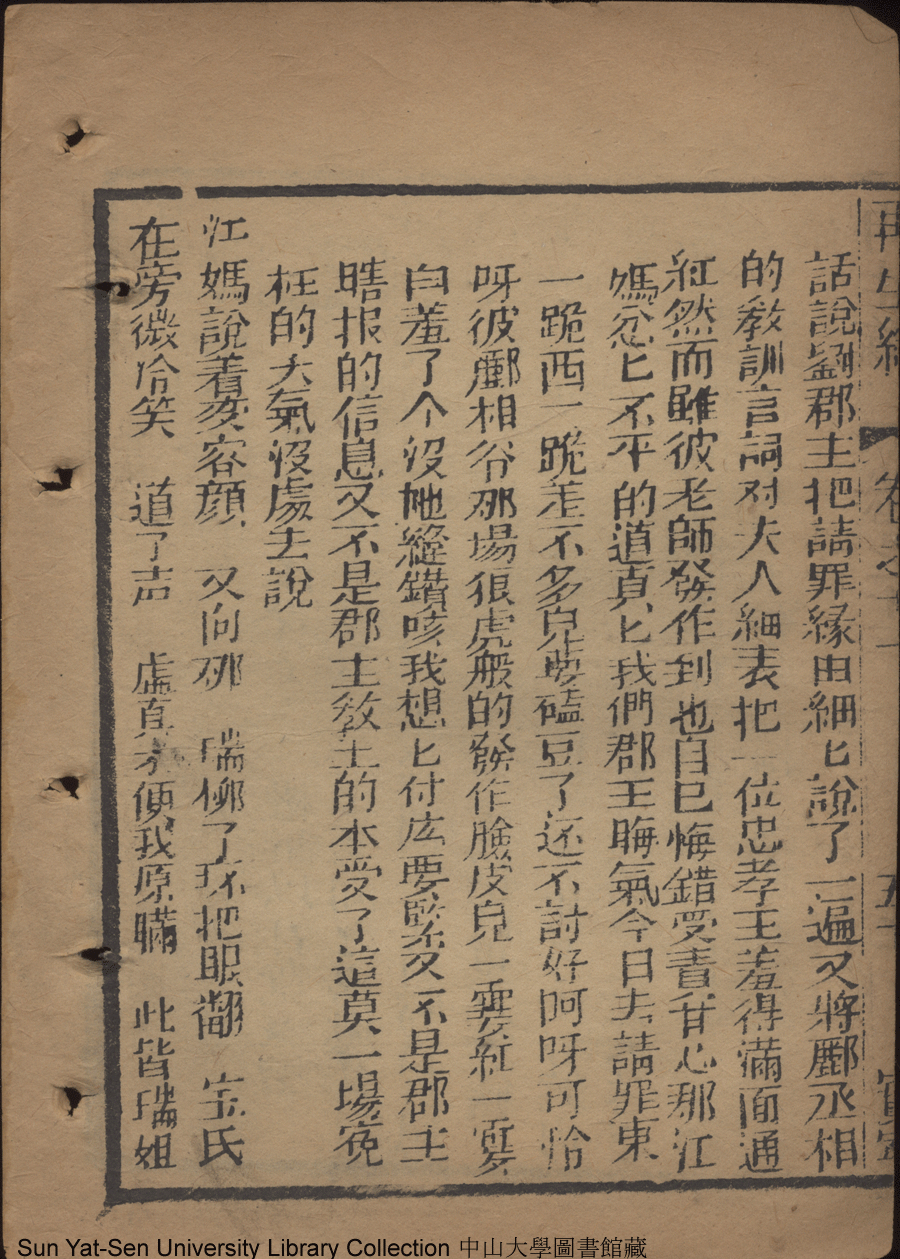 再生緣 卷之十一 五十
話說劉郡主把請罪緣由細匕說了一遍又將酈丞相
的教訓言詞对夫人細表把一位忠孝王羞得滿面通
紅然而雖彼老師發作到也自己悔錯受責甘心那江
媽忿匕不平的道真匕我們郡王晦氣今日去請罪東
一跪西一跪差不多兒要磕豆了还不討好呵呀可恰
呀彼酈相爷那場狠虎般的發作臉皮兒一雯紅一雯
白羞了个沒地縫鑽咳我想匕付庅要緊又不是郡主
瞎报的信息又不是郡主教王的本受了這莫一場寃
枉的大氣沒處去說
江媽說着变容顔 又向那 瑞柳了环把眼翻 宝氏
在旁微冷笑 道了声 虛真才便我原瞞 此皆瑞姐
Sun Yat-Sen University Library Collection 中山大學圖書館藏